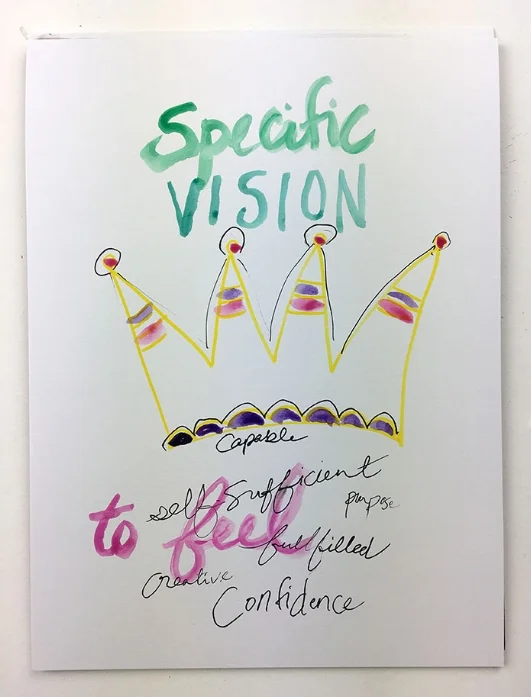 Specific
VISION
Capable
self-sufficient
purpose
to feel
fullfilled
Creative
Confidence